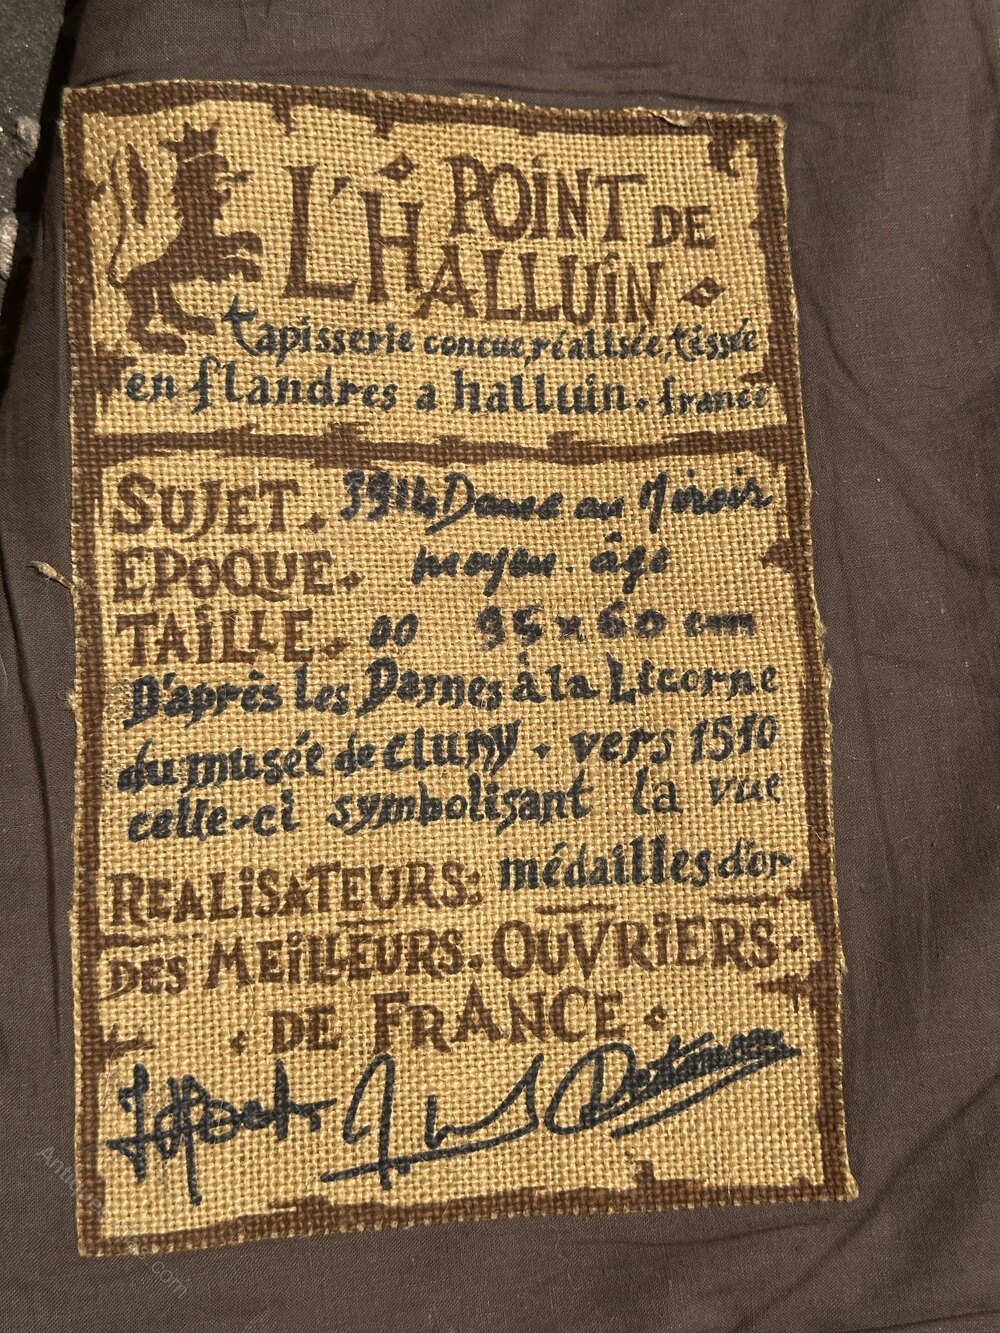 POINT DE
L'HALLUIN
tapisserie concue, réalisée, tissée
en flandres a halluin. france
SUJET. 3914 Dame au Miroir
EPOQUE. moyen. âge
TAILLE. 00 95 x 60 cm
D'après les Dames à la Licorne
du musée de Cluny. vers 1510
celle-ci symbolisant la vue
REALISATEURS: médailles d'or
DES MEILLEURS. OUVRIERS.
DE FRANCE